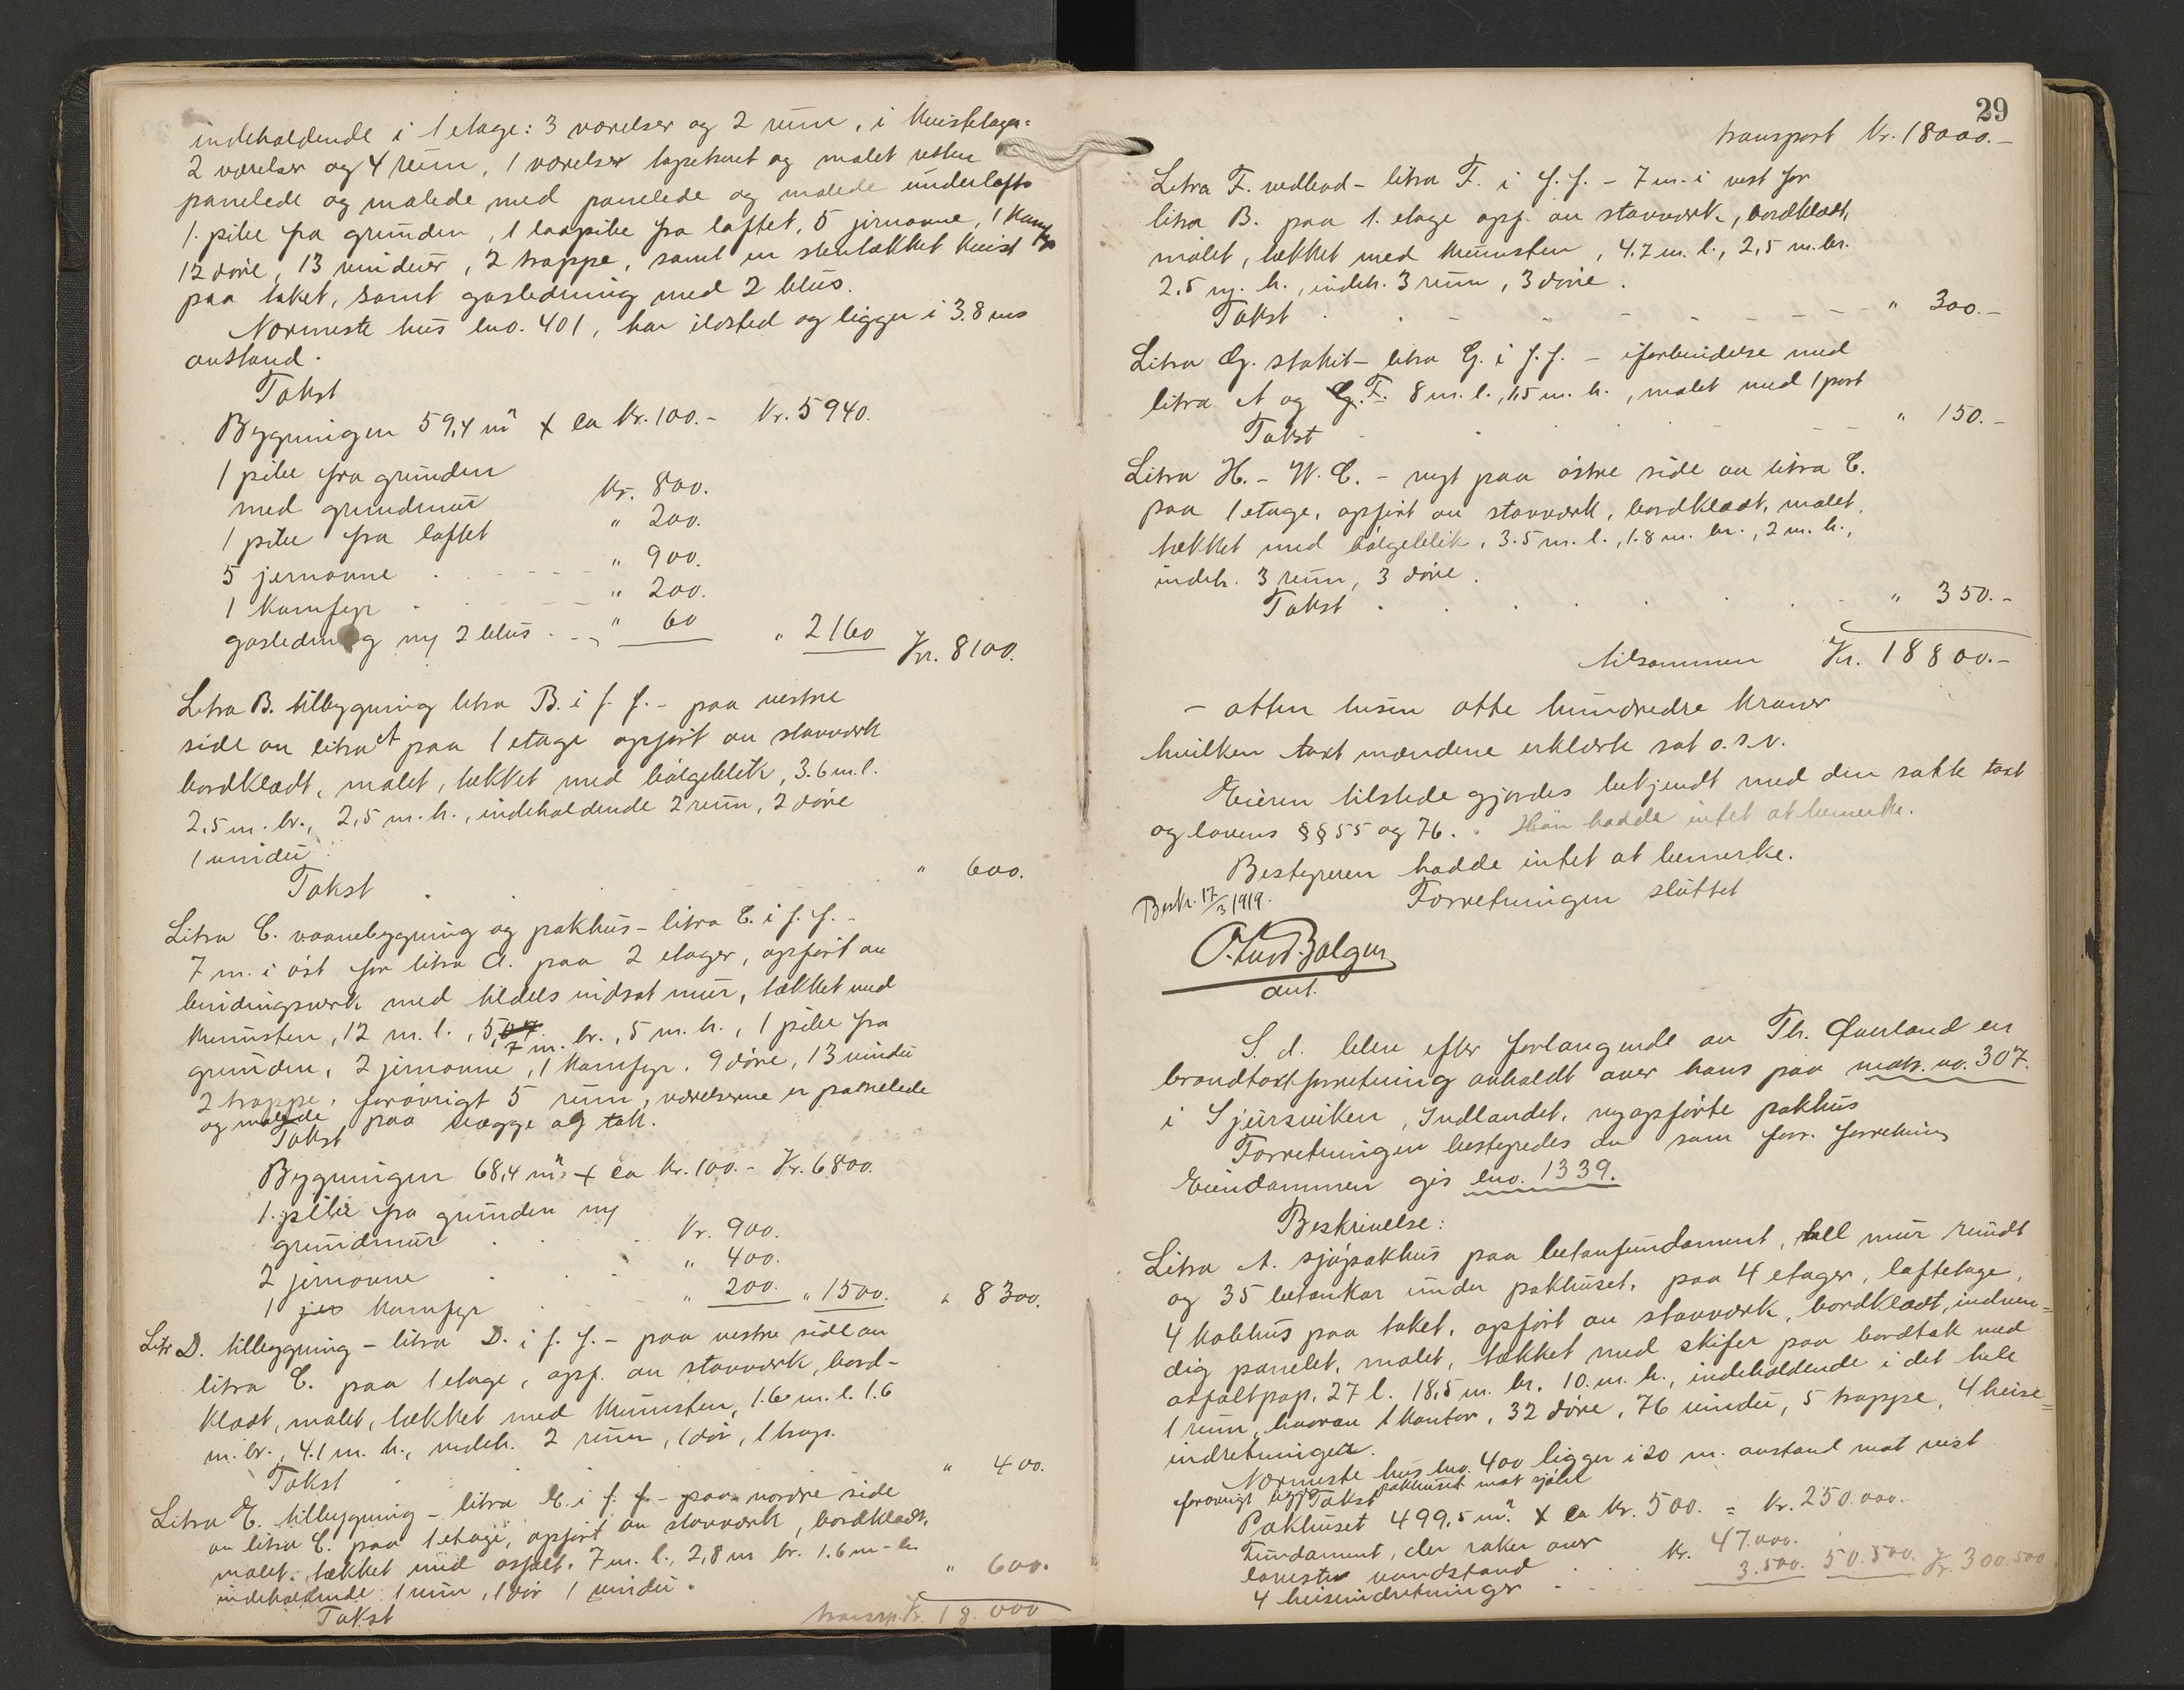 indeholdende i 1 etage: 3 værelser og 2 rum, i kvistetagen:
2 værelser og 4 rum, 1 værelser tapetsert og malet resten
panelede og malede med panelede og malede underlofts
1. pibe fra grunden, 1 laapibe fra loftet, 5 jernovne, 1 komfyr
12 døre, 13 vinduer, 2 trappe, samt en stentækket kvist
paa taket, samt gasledning med 2 blus.
Nærmeste hus bno. 401, har ildsted og ligger i 3.8 ms
avstand.
Takst
Bygningen 59,4 m² x ca kr. 100.- kr. 5940.
1 pibe fra grunden
med grundmur kr. 800.
1 pibe fra loftet " 200.
5 jernovne . - - - " 900.
1 komfyr . - - - " 200.
gasledning m/ 2 blus . - - " 60 " 2160 Kr. 8100.
Litra B. tilbygning litra B. i f. f. - paa vestre
side av litra A paa 1 etage opført av stavværk
bordklædt, malet, tækket med bølgeblik, 3.6 m. l.
2,5 m. br., 2,5 m. h., indeholdende 2 rum, 2 døre
1 vindu.
Takst . . . " 600.
Litra C. vaanebygning og pakhus - litra C. i f. f. -
7 m. i øst for litra A. paa 2 etager, opført av
bindingsverk med tildels indsat mur, tækket med
munnsten, 12 m. l., 5,7 m. br., 5 m. h., 1 pibe fra
grunden, 2 jernovne, 1 komfyr. 9 døre, 13 vindu
2 trappe, forøvrigt 5 rum, værelserne er panelede
og malede paa vægge og tak.
Takst
Bygningen 68,4 m² x ca kr. 100.- Kr. 6800.
1. pibe fra grunden m/
grundmur . . Kr. 900.
2 jernovne . . . " 400.
1 jer komfyr . - - " 200. " 1500. " 8300.
Litr D. tilbygning - litra D. i f. f. - paa vestre side av
litra C. paa 1 etage, opf. av stavværk, bord-
klædt, malet, tækket med munnsten, 1.6 m. l. 1.6
m. br., 4.1 m. h., indeh. 2 rum, 1 dør, 1 trap.
Takst " 400.
Litra E. tilbygning - litra E. i f. f. - paa nordre side
av litra C. paa 1 etage, opført av stavværk, bordklædt,
malet, tækket med asfalt. 7 m. l., 2,8 m br. 1.6 m - h.
indeholdende: 1 rum, 1 dør 1 vindu.
Takst " 600.
transp. Kr. 18.000
29
transport Kr. 18000.-
Litra F. vedbod - litra F. i f. f. - 7 m. i vest for
litra B. paa 1. etage opf. av stavverk, bordklædt,
malet, tækket med munnsten, 4.7 m. l., 2,5 m. br.
2.5 m. h., indeh. 3 rum, 3 døre.
Takst . . - - - - - " 300.-
Litra G. stakit - litra G. i f. f. - i forbindelse med
litra A og G. F. 8 m. l., 1,5 m. h., malet med 1 port
Takst - . . - - " 150.-
Litra H. - W. C. - nyt paa østre side av litra C.
paa 1 etage, opført av stavværk, bordklædt, malet,
tækket med bølgeblik, 3.5 m. l., 1.8 m. br., 2 m. h.,
indeh. 3 rum, 3 døre.
Takst . . . . . " 350.-
tilsammen Kr. 18800.-
- atten tusen otte hundredre kroner
hvilken taxt mændene erklærte sat o. s. v.
Eieren tilstede gjordes bekjendt med den satte taxt
og lovens §§ 55 og 76. Han hadde intet at bemerke.
Bestyreren hadde intet at bemerke.
Besk. 17/3 1919. Forretningen sluttet
aut.
S. d. blev efter forlangende av Th. Øverland en
brandtaxtforretning avholdt over hans paa matr. no. 307.
i Sjursviken, Indlandet, nyopførte pakhus
Forretningen bestyredes av som forr. forretning
Eiendommen gis bno. 1339.
Beskrivelse:
Litra A. sjøpakhus paa betonfundament, hell mur rundt
og 35 betonkar under pakhuset, paa 4 etager, loftetage,
4 kobhus paa taket, opført av stavværk, bordklædt, indven=
dig panelet, malet, tækket med skifer paa bordtak med
asfaltpap, 27 l. 18,5 m. br. 10. m. h., indeholdende i det hele
1 rum, hvorav 1 kontor, 32 døre, 76 vindu, 5 trappe, 4 heise=
indretninger.
Nærmeste hus bno. 400 ligger i 20 m. avstand mot vest
forøvrigt ligger pakhuset mot sjøen
Takst
Pakhuset 499,5 m² x ca Kr. 500. = Kr. 250.000.
Fundament, der raker over
laveste vandstand . . . Kr. 47.000.
4 heiseindretninger - . . 3.500. 50.500. Kr. 300.500